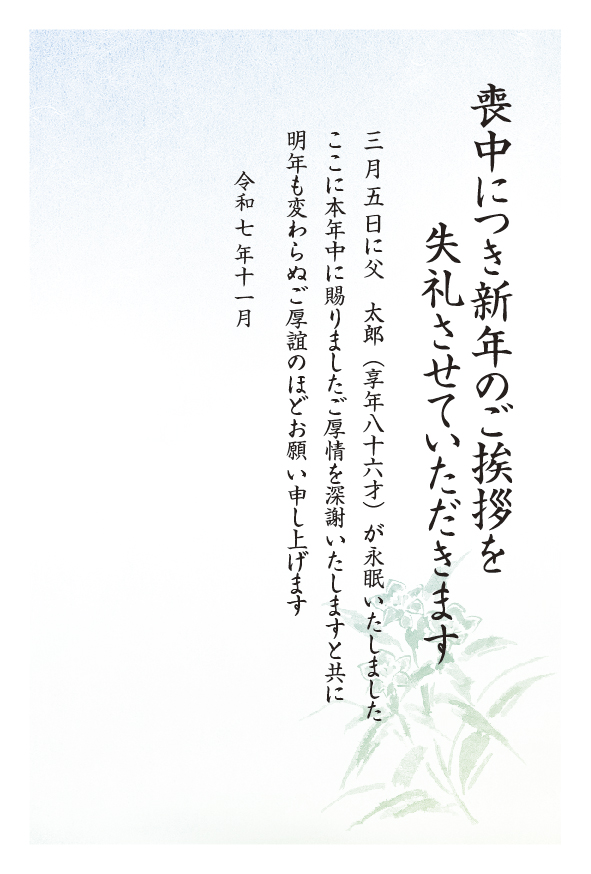 喪中につき新年のご挨拶を
失礼させていただきます
三月五日に父　太郎（享年八十六才）が永眠いたしました
ここに本年中に賜りましたご厚情を深謝いたしますと共に
明年も変わらぬご厚誼のほどお願い申し上げます
令和七年十一月